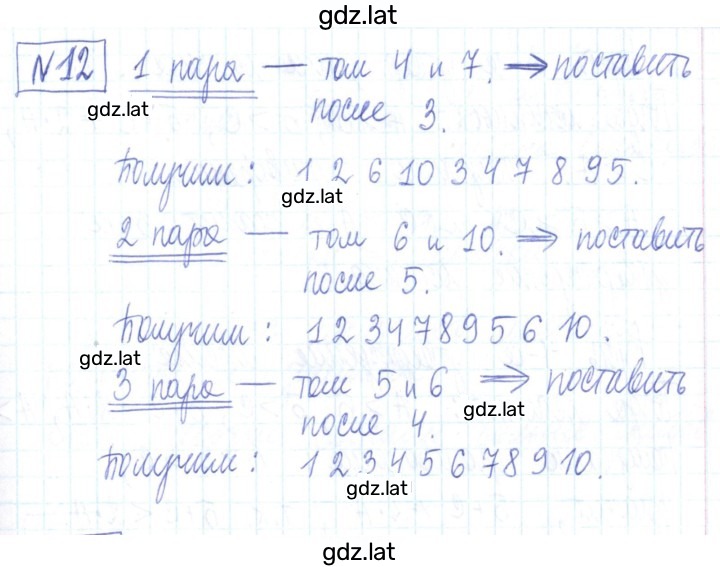 gdz.lat
№12 1 пара — том 4 и 7. ⇒ поставить
gdz.lat
после 3.
Получим: 1 2 6 10 3 4 7 8 9 5.
gdz.lat
2 пара — том 6 и 10. ⇒ поставить
после 5.
Получим: 1 2 3 4 7 8 9 5 6 10.
gdz.lat
3 пара — том 5 и 6 ⇒ поставить
gdz.lat
после 4.
Получим: 1 2 3 4 5 6 7 8 9 10.
gdz.lat
gdz.lat